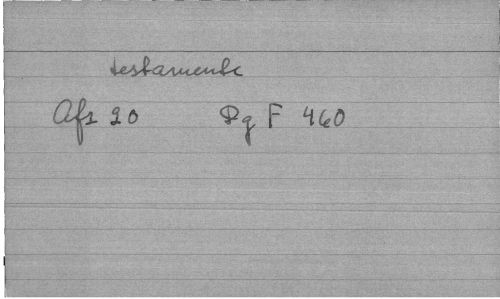 testamente
Afs 20 Dg F 460